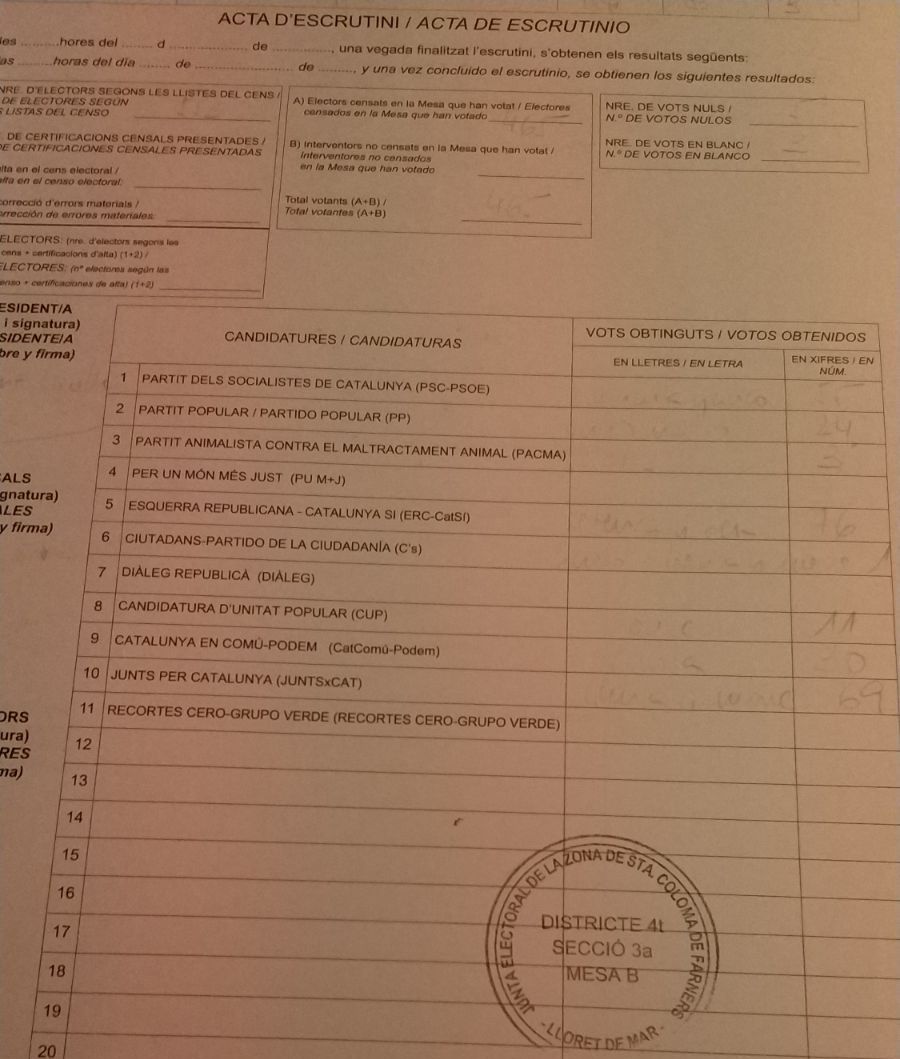 ACTA D'ESCRUTINI / ACTA DE ESCRUTINIO
hores del ........ d ........ de ........, una vegada finalitzat l'escrutini, s'obtenen els resultats següents:
horas del día ........ de ........ de ........, y una vez concluido el escrutinio, se obtienen los siguientes resultados:
NRE. D'ELECTORS SEGONS LES LLISTES DEL CENS /
DE ELECTORES SEGÚN
LISTAS DEL CENSO
DE CERTIFICACIONS CENSALS PRESENTADES /
DE CERTIFICACIONES CENSALES PRESENTADAS
en el cens electoral /
en el censo electoral:
correcció d'errors materials /
de errores materiales:
ELECTORS: (nre. d'electors segons les
cens + certificacions d'alta) (1+2) /
ELECTORES: (nº electores según las
censo + certificaciones de alta) (1+2)
A) Electors censats en la Mesa que han votat / Electores
censados en la Mesa que han votado 465
B) Interventors no censats en la Mesa que han votat /
Interventores no censados
en la Mesa que han votado
Total votants (A+B) /
Total votantes (A+B) 465
NRE. DE VOTS NULS /
N.º DE VOTOS NULOS
NRE. DE VOTS EN BLANC /
N.º DE VOTOS EN BLANCO
i signatura)
y firma)
CANDIDATURES / CANDIDATURAS
VOTS OBTINGUTS / VOTOS OBTENIDOS
EN LLETRES / EN LETRA
EN XIFRES / EN
NÚM.
1 PARTIT DELS SOCIALISTES DE CATALUNYA (PSC-PSOE)
2 PARTIT POPULAR / PARTIDO POPULAR (PP) 24
3 PARTIT ANIMALISTA CONTRA EL MALTRACTAMENT ANIMAL (PACMA) 3
4 PER UN MÓN MÉS JUST (PU M+J)
5 ESQUERRA REPUBLICANA - CATALUNYA SI (ERC-CatSí) 76
6 CIUTADANS-PARTIDO DE LA CIUDADANÍA (C's)
7 DIÀLEG REPUBLICÀ (DIÀLEG)
8 CANDIDATURA D'UNITAT POPULAR (CUP) 11
9 CATALUNYA EN COMÚ-PODEM (CatComú-Podem) 0
10 JUNTS PER CATALUNYA (JUNTSxCAT) 69
11 RECORTES CERO-GRUPO VERDE (RECORTES CERO-GRUPO VERDE)
12
13
14
15
16
17
18
19
20
JUNTA ELECTORAL DE LA ZONA DE STA. COLOMA DE FARNERS
DISTRICTE 4t
SECCIÓ 3a
MESA B
- LLORET DE MAR -